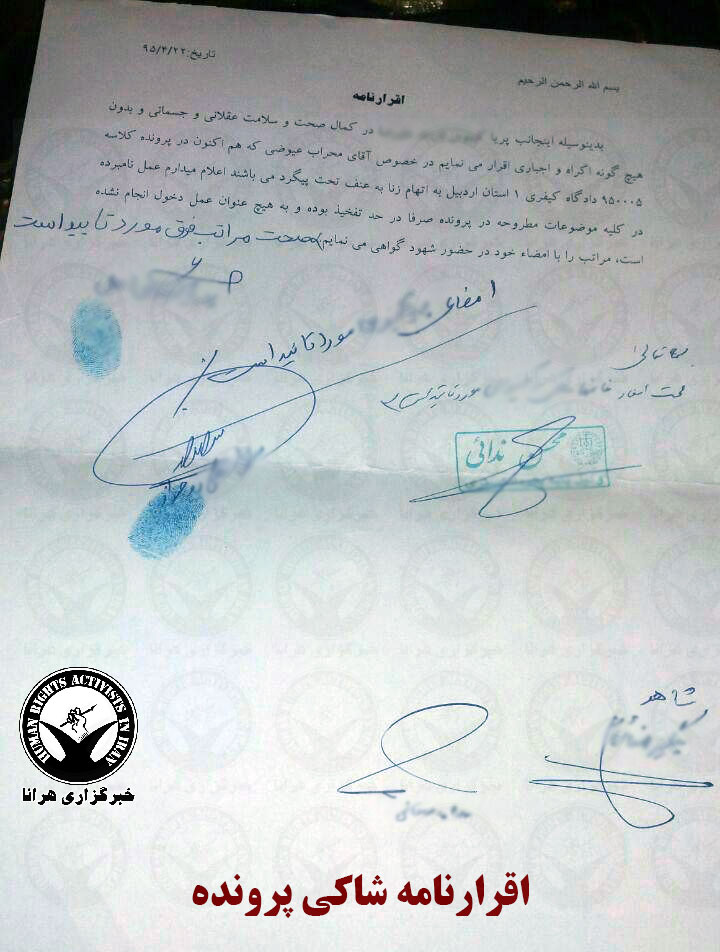 تاریخ: ۹۵/۴/۲۲
بسم الله الرحمن الرحیم
اقرارنامه
بدینوسیله اینجانب پریا در کمال صحت و سلامت عقلانی و جسمانی و بدون
هیچ گونه اکراه و اجباری اقرار می نمایم در خصوص آقای محراب عیوضی که هم اکنون در پرونده کلاسه
۹۵۰۰۰۵ دادگاه کیفری ۱ استان اردبیل به اتهام زنا به عنف تحت پیگرد می باشند اعلام میدارم عمل نامبرده
در کلیه موضوعات مطروحه در پرونده صرفا در حد تفخیذ بوده و به هیچ عنوان عمل دخول انجام نشده
است، مراتب را با امضاء خود در حضور شهود گواهی می نمایم
صحت مراتب فوق مورد تایید است
امضای مورد تائید است
صحت امضاء مورد تائید است
ندائی
شاهد
HUMAN RIGHTS ACTIVISTS IN IRAN
خبرگزاری هرانا
اقرارنامه شاکی پرونده